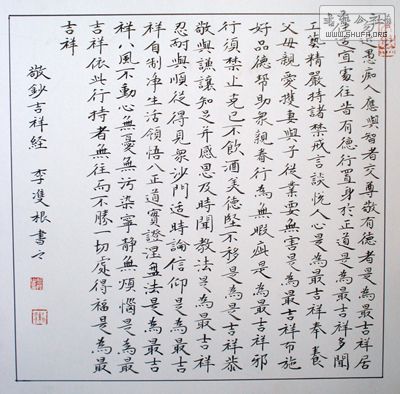 近愚痴人應與智者交尊敬有德者是為最吉祥居
住適宜處往昔有德行置身於正道是為最吉祥多聞
工藝精嚴持諸禁戒言談悅人心是為最吉祥奉養
父母親愛護妻與子從業要無害是為最吉祥布施
好品德幫助眾親眷行為無瑕疵是為最吉祥邪
行須禁止克己不飲酒美德堅不移是為最吉祥恭
敬與謙讓知足并感恩及時聞教法是為最吉祥
忍耐與順從得見眾沙門適時論信仰是為最吉
祥自制淨生活領悟八正道實證涅槃法是為最吉
祥八風不動心無憂無污染寧靜無煩惱是為最
吉祥依此行持者無往而不勝一切處得福是為最
吉祥
敬鈔吉祥經 李雙根書之
WWW.SHUFA.ORG